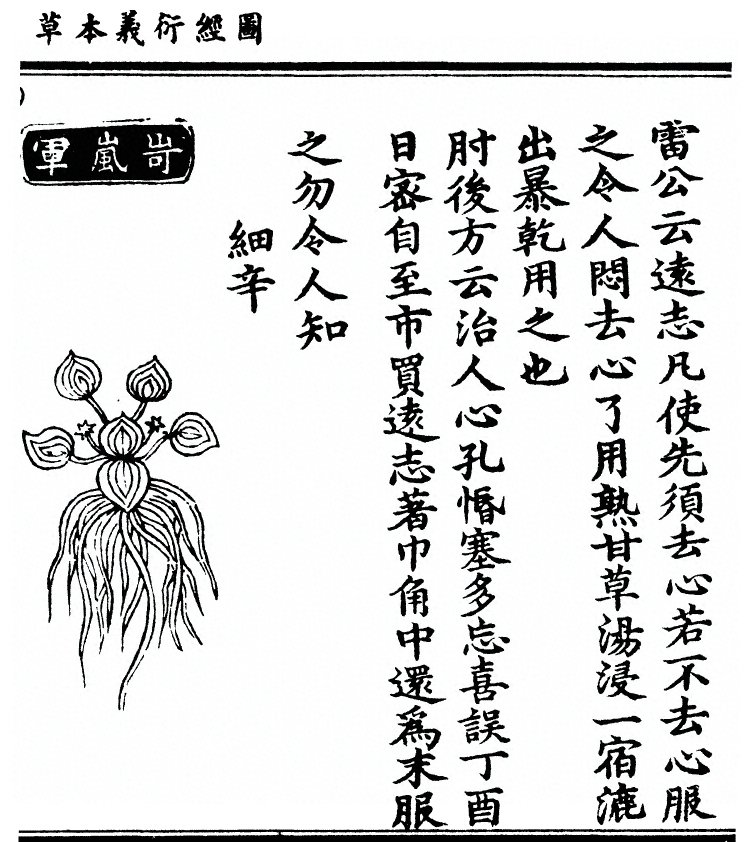 圖經衍義本草
雷公云遠志凡使先須去心若不去心服
之令人悶去心了用熟甘草湯浸一宿漉
出暴乾用之也
肘後方云治人心孔惛塞多忘喜誤丁酉
日密自至市買遠志著巾角中還爲末服
之勿令人知
細辛
岢嵐軍